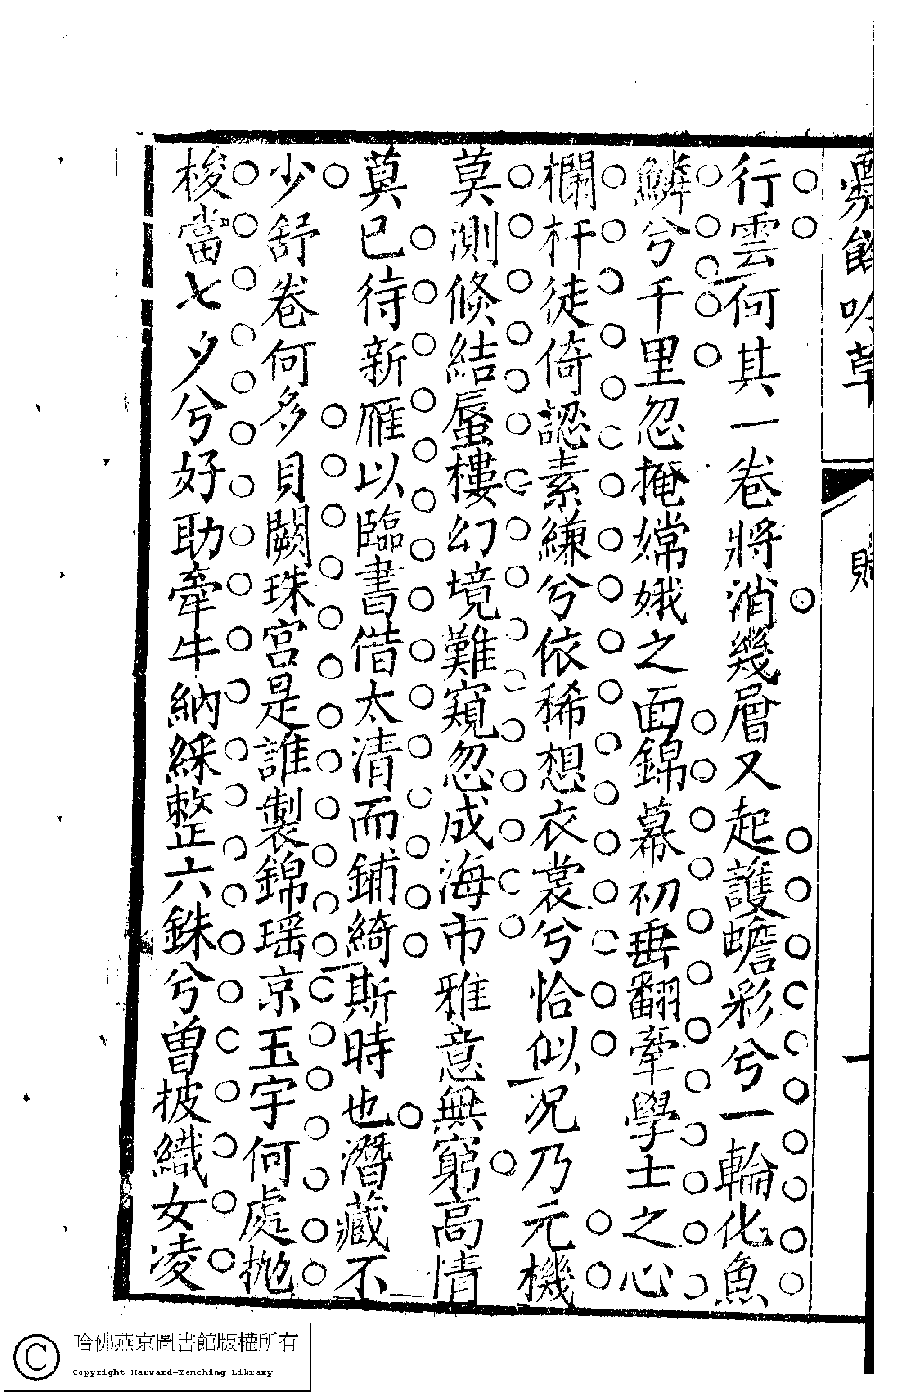 爨餘吟草
賦
一
行雲何其一卷將消幾層又起護蟾彩兮一輪化魚
鱗兮千里忽掩嫦娥之面錦幕初垂翻牽學士之心
欄杆徒倚認素縑兮依稀想衣裳兮恰似况乃元機
莫測倐結蜃樓幻境難窺忽成海市雅意無窮高情
莫已待新雁以臨書借太清而鋪綺斯時也潛藏不
少舒卷何多貝闕珠宮是誰製錦瑶京玉宇何處抛
梭當七夕兮好助牽牛納綵整六銖兮曾披織女凌
哈佛燕京圖書館版權所有
Copyright Harvard-Yenching Library